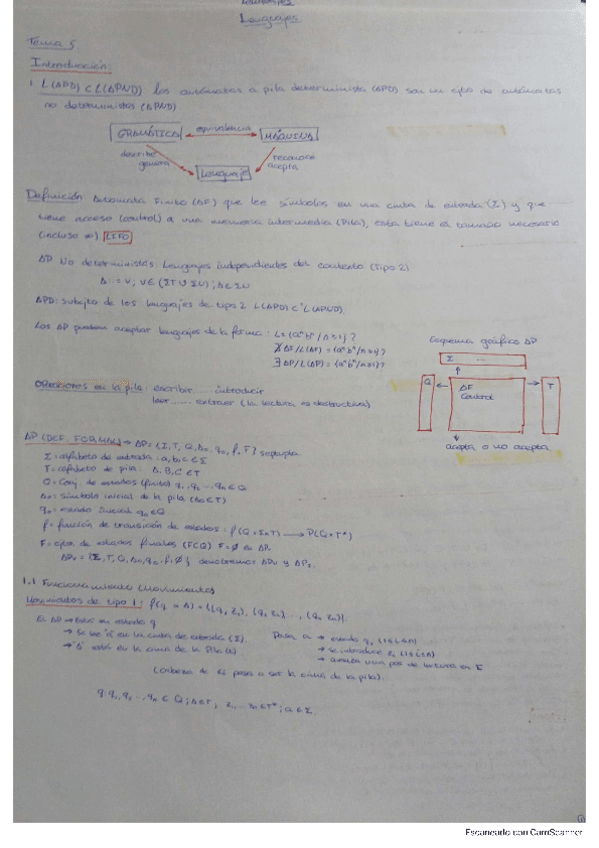 Lenguajes
Tema 5
Introducción:
1. L(APD) ⊂ L(APND) los autómatas a pila determinista (APD) son un cjto de autómatas
no deterministas (APND)
GRAMÁTICA equivalencia MÁQUINA
describe genera reconoce acepta
Lenguaje
Definición: Automata Finito (AF) que lee símbolos en una cinta de entrada (Σ) y que
tiene acceso (control) a una memoria intermedia (Pila), esta tiene el tamaño necesario
(incluso ∞) LIFO
AP No deterministas: Lenguajes independientes del contexto (Tipo 2)
APD: subcjto de los lenguajes de tipo 2 L(APD) ⊂ L(APND).
Los AP pueden aceptar lenguajes de la forma: L = {aⁿbⁿ / n≥1}?
∄ AF / L(AF) = {aⁿbⁿ / n≥1}?
∃ AP / L(AP) = {aⁿbⁿ / n≥1}?
Esquema gráfico AP
Σ ...
Q AF Control T
acepta o no acepta
Operaciones en la pila: escribir ..... introducir
leer ...... extraer (la lectura es destructiva)
AP (DEF. FORMAL) → AP = {Σ, T, Q, A₀, q₀, f, F} septupla.
Σ = alfabeto de entrada: a, b, c ∈ Σ
T = alfabeto de pila: A, B, C ∈ T
Q = Conj. de estados (finito) q, q₁ ... qₙ ∈ Q
A₀ = símbolo inicial de la pila (A₀ ∈ T)
q₀ = estado inicial q₀ ∈ Q
f = función de transición de estados: f(Q × Σ × T) → P(Q × T*)
F = cjto de estados finales (F ⊂ Q) F = ∅ en AP
1.1 Funcionamiento (Movimientos)
Movimientos de tipo 1:
El AP → Está en estado q
→ se lee 'a' en la cinta de entrada (Σ).
→ 'A' está en la cima de la Pila
Pasa a → estado
→ se introduce
→ avanza una pos de lectura en Σ
pasa a ser la cima de la pila).
q, q₁, q₂ ..., qₙ ∈ Q ; A ∈ T ; z₁ ... zₙ ∈ T* ; a ∈ Σ
Escaneado con CamScanner